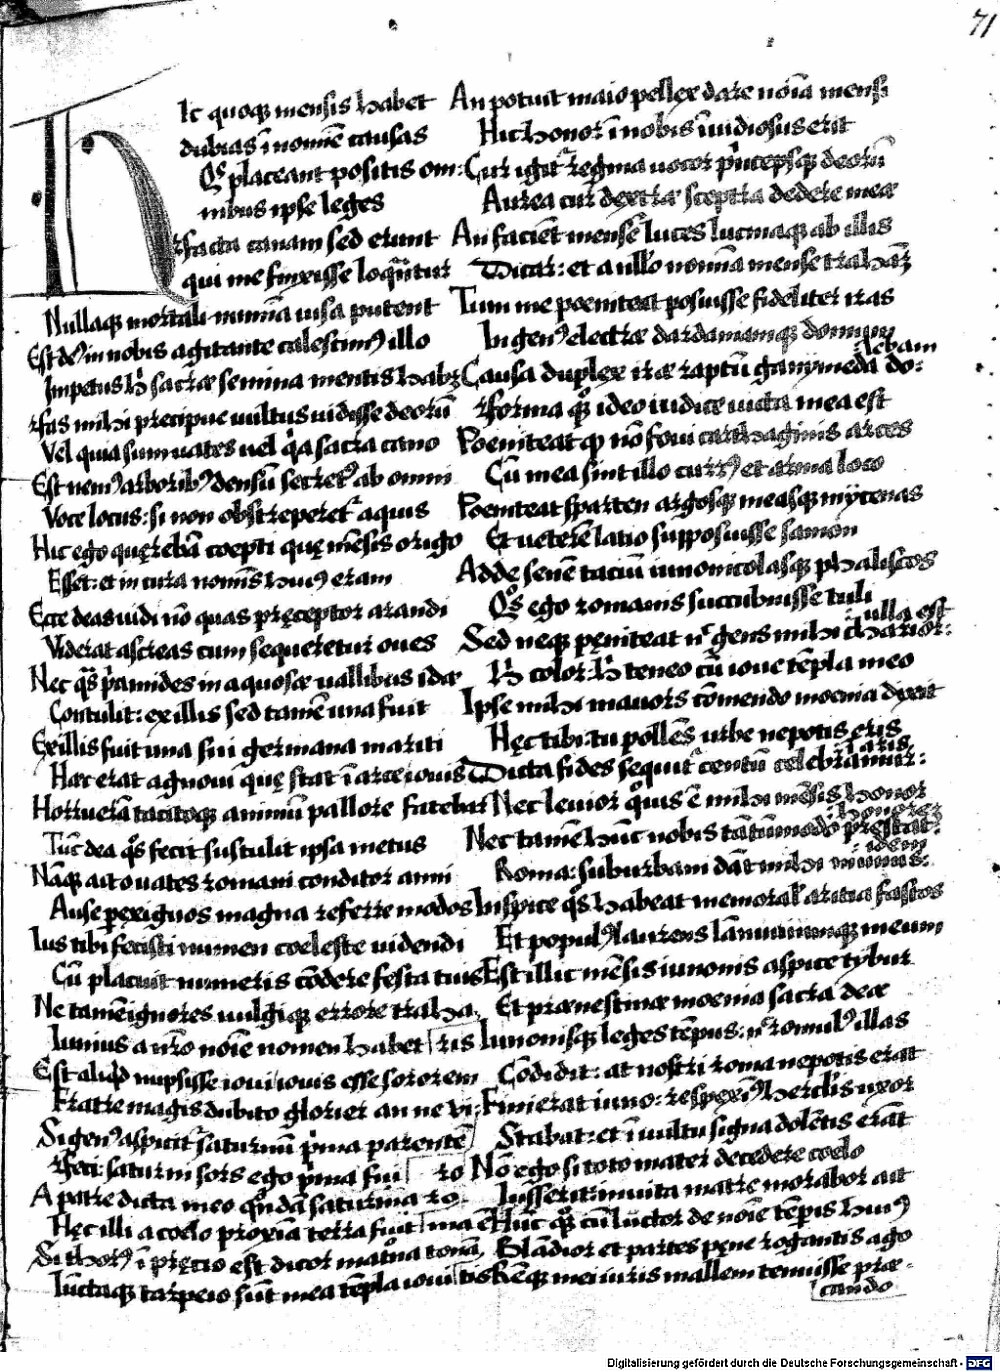 71
Ic quoq; mensis habet
dubias ī nomē causas
Qs placeant positis om:
nibus ipse leges
facta canam sed erunt
qui me finxisse loquātur
Nullaq; mortali numīa uisa putent
Est deꝰ in nobis agitante calescimꝰ illo
Impetus h̄ sacræ semina mentis habet
fas mihi precipue uultus uidisse deorū
Vel quia sum uates uel qa sacra cano
Est nemꝰ arboribꝰ densū secretꝰ ab omni
Voce locus: si non obstreperet aquis
Hic ego quęrebā coepti quę mēsis origo
Esset: et in cura nomīs huiꝰ eram
Ecce deas uidi nō quas pręceptor arandi
Viderat ascreas cum sequeretur oues
Nec qs priamides in aquosæ uallibus idæ
Contulit: ex illis sed tamē una fuit
Ex illis fuit una sui germana mariti
Hæc erat agnoui quę stat ī arce iouis
Horruerā tacitoq; animū pallore fatebar
Tūc dea qs fecit sustulit ipsa metus
Nāq; ait o uates romani conditor anni
Ause per exiguos magna referre modos
Ius tibi fecisti numen coeleste uidendi
Cū placuit numeris cōdere festa tuis
Ne tamē ignores uulgiq; errore traha
Iunius a nro nōie nomen habet ris
Est aliqd nupsisse ioui iouis esse sororem
Fratre magis dubito glorier an ne vi:
Si genꝰ aspicit saturnū pma parentē
feci: saturni sors ego pma fui ro
A patre dicta meo qndā saturnia ro
Hęc illi a coelo proxīa terra fuit ma ē
Si thorꝰ ī pręcio est dicor matrōa tonā
Iūctaq; tarpeio sūt mea tēpla ioui tis
An potuit maio pellex dare noīa mensi
Hic honor ī nobis īuidiosus erit
Cur igit regina uocor pncepsq; deorū
Aurea cur dextræ sceptra dedere meæ
An faciēt mensē luces lucinaq; ab illis
Dicar: et a nullo nomīa mense trahā
Tum me poeniteat posuisse fideliter iras
In genꝰ electræ dardaniamq; domum
Causa duplex iræ raptū ganymedē do:
lebam
forma qꝫ ideo iudice uicta mea est
Poeniteat qp nō foui carthaginis arces
Cū mea sint illo currꝰ et arma loco
Poeniteat sparten argosq; measq; mycenas
Et ueterē latio supposuisse samon
Adde senē taciū iunonicolasq; phaliscos
Qs ego romanis succubuisse tuli
Sed neq; pęniteat nc gens mihi charior:
ulla est
h̄ color: h̄ teneo cū ioue tēpla meo
Ipse mihi mauors cōmendo moenia dixit
Hęc tibi: tu pollēs urbe nepotis eris
Dicta fides sequit centū celebramur:
aris
Nec leuior qvis ē mihi mēsis honor
Nec tamē hūc nobis tātūmodo pręstat:
honorē
Roma: suburbani dāt mihi munus:
idem
Inspice qs habeat nemoral aricia fastos
Et populꝰ laurens lānuuiumq; meum
Est illic mēsis iunonis aspice tybur
Et prænestinæ moenia sacra deæ
Iunonisq; leges tēpus: nc romulꝰ illas
Cōdidit: at nostri roma nepotis erat
Finierat iuno: respeximꝰ herclis uxor
Stabat: et ī uultu signa dolētis erāt
Nō ego si toto mater decedere coelo
Iusserit: inuita matre morabor ait
Hūc qꝫ cū luctor de nōie tēpis huiꝰ
Blādior et partes pęne rogantis ago
Rēq; mei iuris mallem tenuisse præ-
cando
Digitalisierung gefördert durch die Deutsche Forschungsgemeinschaft - DFG